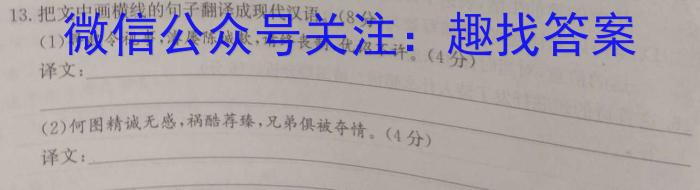 13.把文中画横线的句子翻译成现代汉语。(8分)
微信公众号关注：趣找答案
(1) 陈诚款,终丧 不许。(4分)
译文:
(2)何图精诚无感,祸酷荐臻,兄弟俱被夺情。(4分)
译文: